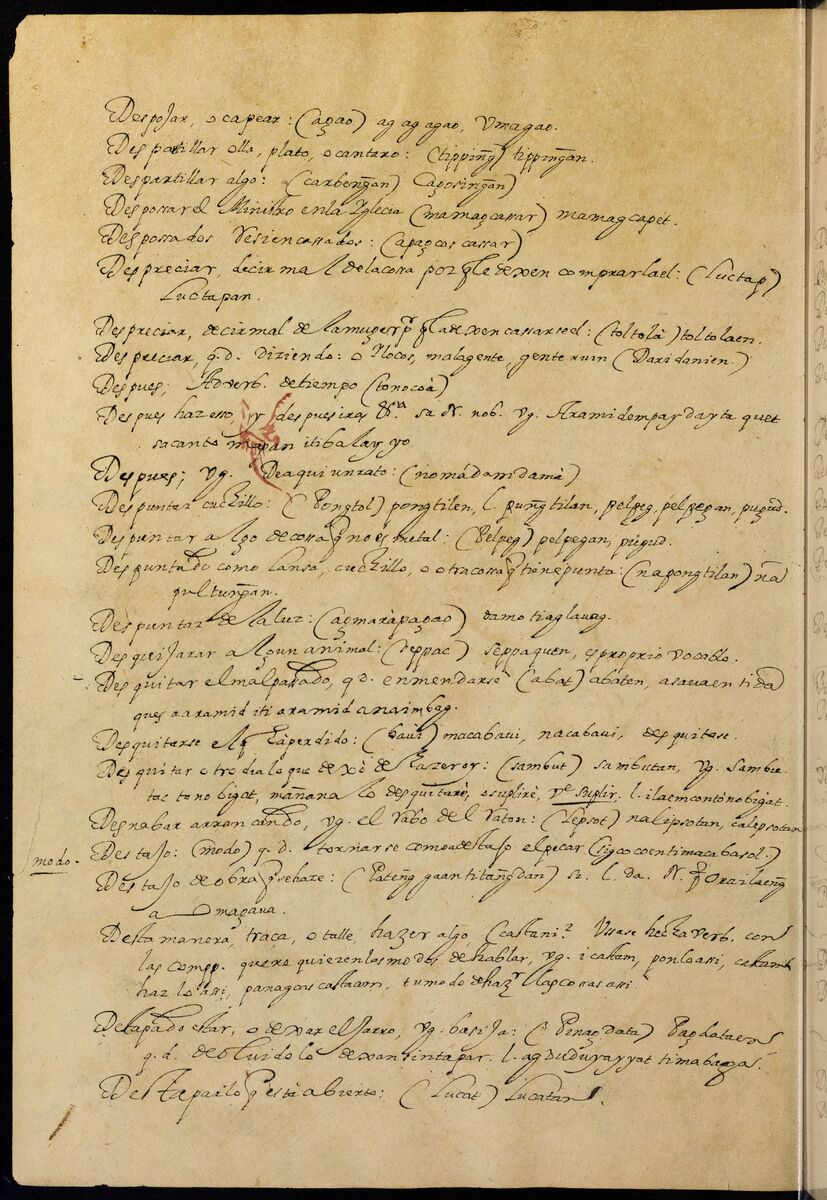 Despojar, o capear: (agao) ag ag agao, Vmagao.
Despartillar olla, plato, o cantaro: (tipping) tippingan.
Despartillar algo: (carbengan) Caposingan)
Despossar el Ministro en la Yglecia (mamagcassar) mamagcapet.
Despossados Resiencassados: (apagcos cassar)
Despreciar, decir mal de la cosa por qe le dexen comprar lael: (Luctap)
Luctapan.
Despreciar, decir mal de la muger pr q la dexen cassar sool: (toltola) toltolaen.
Despreciar, q.d. diziendo: o Ylocos, malagente, gente ruin (Daridanien.)
Despues; Adverb. de tiempo (tonocoa)
Despues haz esso, y despues iras &.a sa N. nob. vg. Aramidempay dayta quet
sacanto mapan iti balay yo
Despues; vg. De aqui un rato: (nomadamdama)
Despuntar cuchillo: (Pongtol) pongtilen, l. pungtilan, pelpeg, pelpegan, pugud.
Despuntar algo de cossa q no es metal: (Pelpeg) pelpegan, pugud.
Despuntado como lansa, cuchillo, o otra cossa q tiene punta: (napongtilan) na
pultungan.
Despuntar de la luz: (agmarapagao) damotiaglauag.
Desquijarar algun animal: (seppac) seppaquen, es proprio vocablo.
Desquitar el mal passado, q.d. enmendarse (abat) abaten, asauaentida
ques aaramid iti aramid a naimbag.
Desquitarse el q ha perdido: (baui) macabaui, nacabaui, desquitose.
Desquitar otro dia lo que dexò de hazer oy: (sambut) sambutan, vg. Sambu
tac tonobigat, mañana lo desquitarè, o suplirè, Ve Suplir, l. ilaemcontonobigat.
Desrabar arrancando, vg. el rabo del raton: (Lepsot) nalipsotan, calepsotan
modo. Destajo: (modo) q.d. tornarse como a destajo el pecar (sigcocoentimacabasol.)
Destajo de obra q se haze: (Pateng gaantitangdan) si. l. da. N. q Orailaeng
a Omagaua.
Desta manera, traça, o talle, hazer algo (castani? Ussase hecha verb. con
las compp. que requieren los modos de hablar, vg. i castam, ponlo assi, castam
haz lo assi, panagcas castaam, tu modo de hazr llas cosas assi
Destapado estar, o dexar el jarro, vg. basija: (Pinagdata) Pagdataen
q.d. de olvido lo dexan sin tapar. l. agduduyayyat timabagas.
Destapar lo q està abierto: (Lucat) Lucatan.